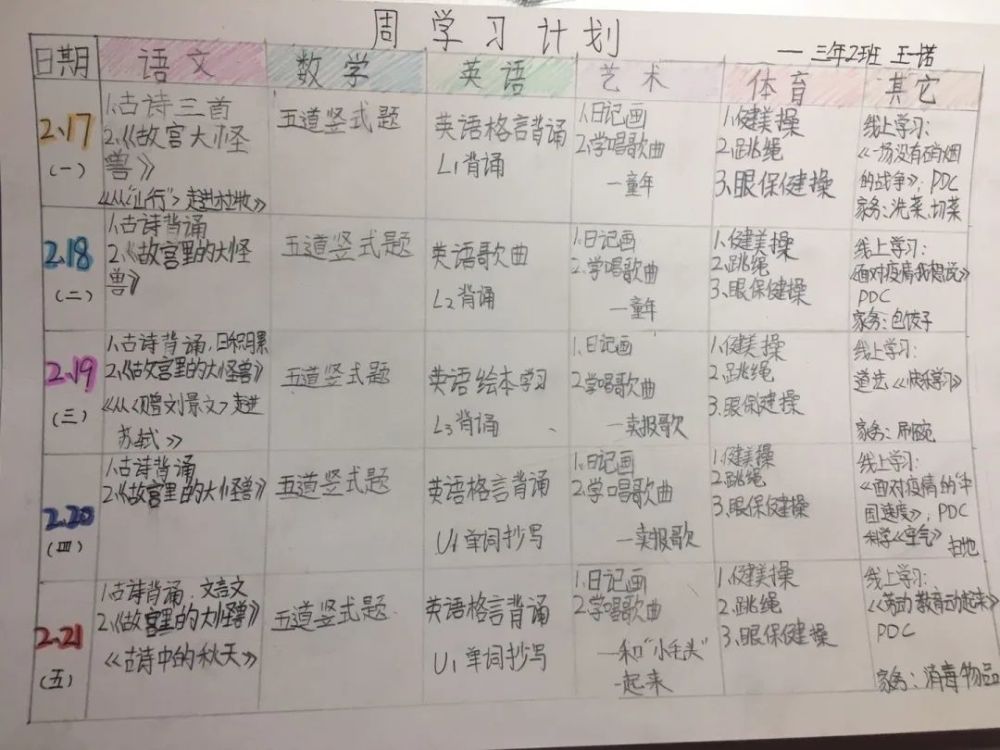 周学习计划
一 三年2班 王一诺
日期 语文 数学 英语 艺术 体育 其它
2.17
(一)
1.古诗三首
2.《故宫大怪
兽》
《从“山行”走进杜牧》
五道竖式题
英语格言背诵
L1背诵
1.日记画
2.学唱歌曲
一童年
1.健美操
2.跳绳
3.眼保健操
线上学习:
《一场没有硝烟
的战争》, PDC
家务:洗菜、切菜
2.18
(二)
1.古诗背诵
2.《故宫里的大怪
兽》
五道竖式题
英语歌曲
L2背诵
1.日记画
2.学唱歌曲
一童年
1.健美操
2.跳绳
3.眼保健操
线上学习:
《面对疫情我想说》
PDC
家务:包饺子
2.19
(三)
1.古诗背诵,日积月累
2.《故宫里的大怪兽》
《从<赠刘景文>走进
苏轼》
五道竖式题
英语绘本学习
L3背诵
1.日记画
2.学唱歌曲
一卖报歌
1.健美操
2.跳绳
3.眼保健操
线上学习:
道法《快乐学习》
家务:刷碗
2.20
(四)
1.古诗背诵
2.《故宫里的大怪兽》
五道竖式题
英语格言背诵
U1单词抄写
1.日记画
2.学唱歌曲
一卖报歌
1.健美操
2.跳绳
3.眼保健操
线上学习:
《面对疫情的中
国速度》, PDC
科学《空气》 扫地
2.21
(五)
1.古诗背诵、文言文
2.《故宫里的大怪兽》
《古诗中的秋天》
五道竖式题
英语格言背诵
U1单词抄写
1.日记画
2.学唱歌曲
一和“小毛头”
一起来
1.健美操
2.跳绳
3.眼保健操
线上学习:
《劳动教育动起来》
PDC
家务:消毒物品